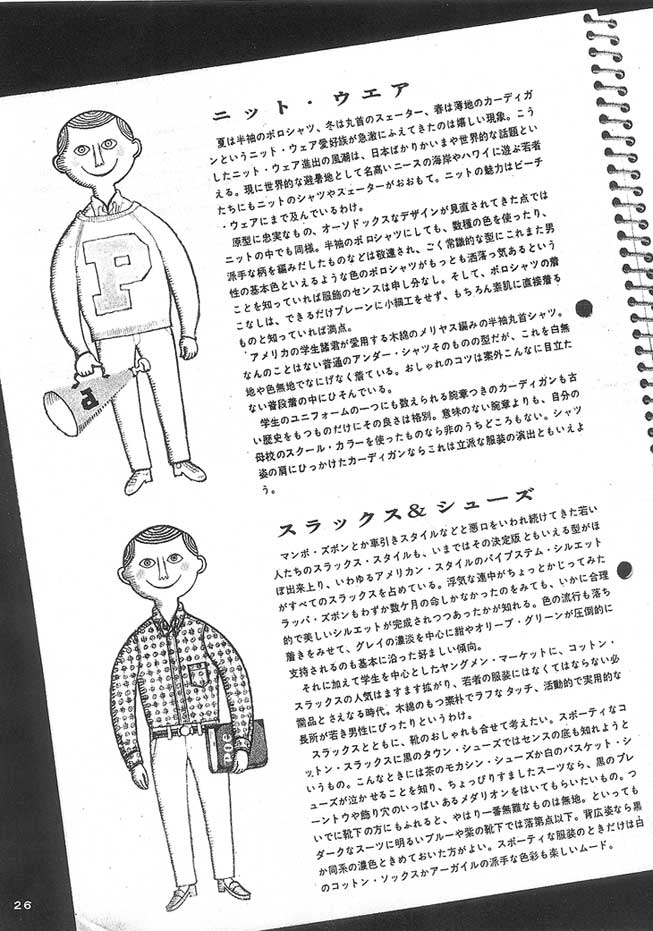 ニット・ウエア
夏は半袖のポロシャツ、冬は丸首のスェーター、春は薄地のカーディガ
ンというニット・ウェア愛好族が急激にふえてきたのは嬉しい現象。こう
したニット・ウェア進出の風潮は、日本ばかりかいまや世界的な話題とい
える。現に世界的な避暑地として名高いニースの海岸やハワイに遊ぶ若者
たちにもニットのシャツやスェーターがおおもて。ニットの魅力はビーチ
・ウェアにまで及んでいるわけ。
原型に忠実なもの、オーソドックスなデザインが見直されてきた点では
ニットの中でも同様。半袖のポロシャツにしても、数種の色を使ったり、
派手な柄を編みだしたものなどは敬遠され、ごく常識的な型にこれまた男
性の基本色といえるような色のポロシャツがもっとも洒落っ気あるという
ことを知っていれば服飾のセンスは申し分なし。そして、ポロシャツの着
こなしは、できるだけプレーンに小細工をせず、もちろん素肌に直接着る
ものと知っていれば満点。
アメリカの学生諸君が愛用する木綿のメリヤス編みの半袖丸首シャツ。
なんのことはない普通のアンダー・シャツそのものの型だが、これを白無
地や色無地でなにげなく着ている。おしゃれのコツは案外こんなに目立た
ない普段着の中にひそんでいる。
学生のユニフォームの一つにも数えられる腕章つきのカーディガンも古
い歴史をもつものだけにその良さは格別。意味のない腕章よりも、自分の
母校のスクール・カラーを使ったものなら非のうちどころもない。シャツ
姿の肩にひっかけたカーディガンならこれは立派な服装の演出ともいえよ
う。
P
a
スラックス&シューズ
マンボ・ズボンとか車引きスタイルなどと悪口をいわれ続けてきた若い
人たちのスラックス・スタイルも、いまではその決定版ともいえる型がほ
ぼ出来上り、いわゆるアメリカン・スタイルのパイプステム・シルエット
がすべてのスラックスを占めている。浮気な連中がちょっとかじってみた
ラッパ・ズボンもわずか数ケ月の命しかなかったのをみても、いかに合理
的で美しいシルエットが完成されつつあったかが知れる。色の流行も落ち
着きをみせて、グレイの濃淡を中心に紺やオリーブ・グリーンが圧倒的に
支持されるのも基本に沿った好ましい傾向。
それに加えて学生を中心としたヤングメン・マーケットに、コットン・
スラックスの人気はますます拡がり、若者の服装にはなくてはならない必
需品とさえなる時代。木綿のもつ素朴でラフなタッチ、活動的で実用的な
長所が若き男性にぴったりというわけ。
スラックスとともに、靴のおしゃれも合せて考えたい。スポーティなコ
ットン・スラックスに黒のタウン・シューズではセンスの底も知れようと
いうもの。こんなときには茶のモカシン・シューズか白のバスケット・シ
ューズが泣かせることを知り、ちょっぴりすましたスーツなら、黒のプレ
ーントウや飾り穴のいっぱいあるメダリオンをはいてもらいたいもの。つ
いでに靴下の方にもふれると、やはり一番無難なものは無地。といっても
ダークなスーツに明るいブルーや紫の靴下では落第点以下。背広姿なら黒
か同系の濃色ときめておいた方がよい。スポーティな服装のときだけは白
のコットン・ソックスかアーガイルの派手な色彩も楽しいムード。
POE
26